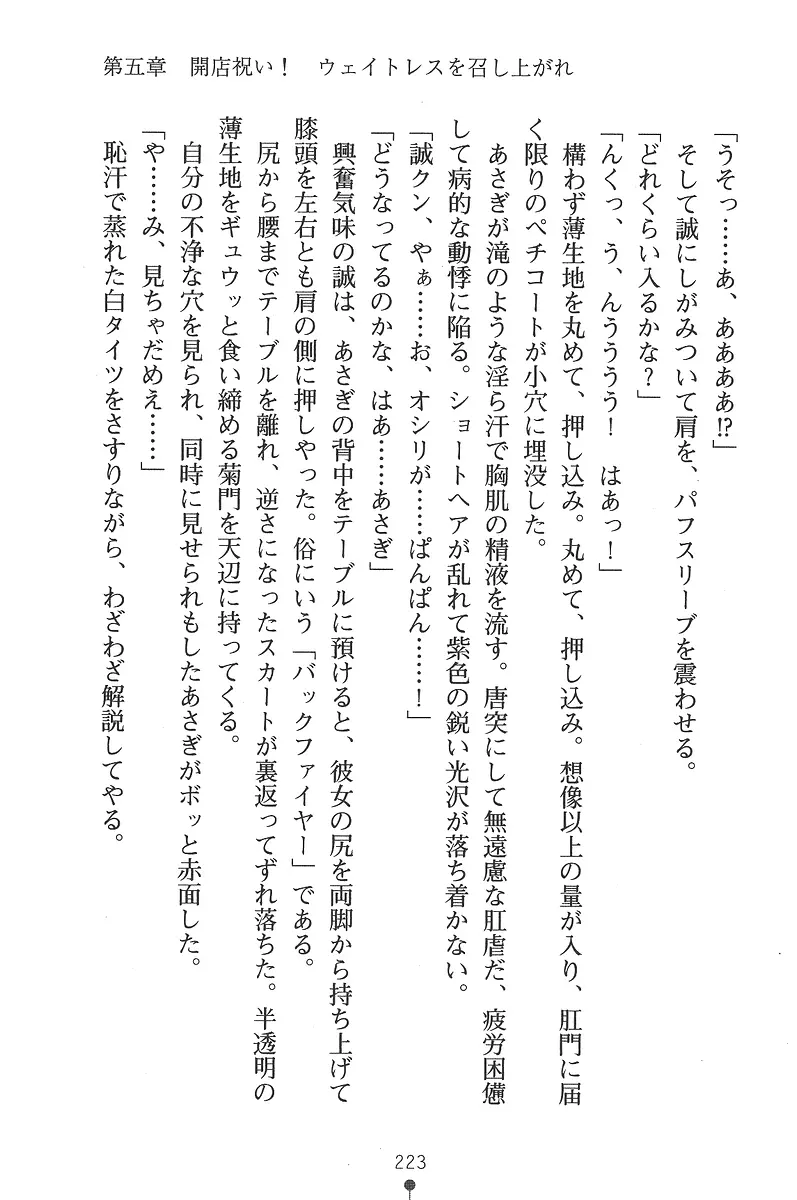 第五章　開店祝い！　ウェイトレスを召し上がれ
「うそっ……あ、ああああ⁉」
そして誠にしがみついて肩を、パフスリーブを震わせる。
「どれくらい入るかな？」
「んくっ、う、んうううう！　はあっ！」
構わず薄生地を丸めて、押し込み。丸めて、押し込み。想像以上の量が入り、肛門に届
く限りのペチコートが小穴に埋没した。
あさぎが滝のような淫ら汗で胸肌の精液を流す。唐突にして無遠慮な肛虐だ、疲労困憊
して病的な動悸に陥る。ショートヘアが乱れて紫色の鋭い光沢が落ち着かない。
「誠クン、やぁ……お、オシリが……ぱんぱん……！」
「どうなってるのかな、はあ……あさぎ」
興奮気味の誠は、あさぎの背中をテーブルに預けると、彼女の尻を両脚から持ち上げて
膝頭を左右とも肩の側に押しやった。俗にいう「バックファイヤー」である。
尻から腰までテーブルを離れ、逆さになったスカートが裏返ってずれ落ちた。半透明の
薄生地をギュウッと食い締める菊門を天辺に持ってくる。
自分の不浄な穴を見られ、同時に見せられもしたあさぎがボッと赤面した。
「や……み、見ちゃだめえ……」
恥汗で蒸れた白タイツをさすりながら、わざわざ解説してやる。
223